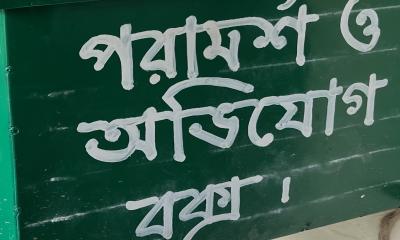 পরামর্শ ও
অভিযোগ
বক্স।